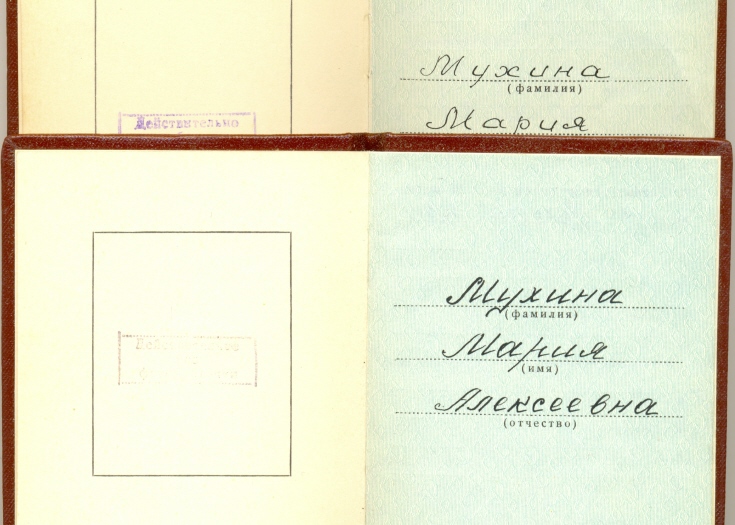 Мухина
(фамилия)
Действительно
Мария
Мухина
(фамилия)
Мария
(имя)
Алексеевна
(отчество)